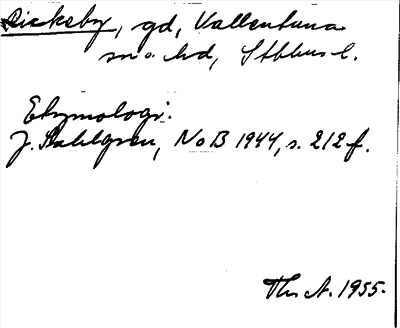 Rickeby, gd, Vallentuna
sn o. hd, Sthlms l.
Etymologi:
J. Sahlgren, NoB 1944, s. 212 f.
Th. A. 1955.